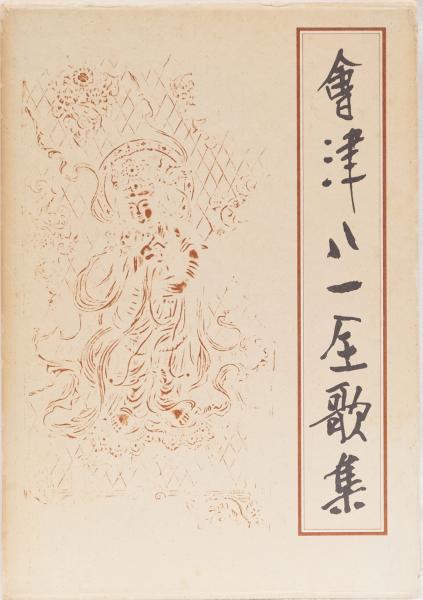 會津八一全歌集